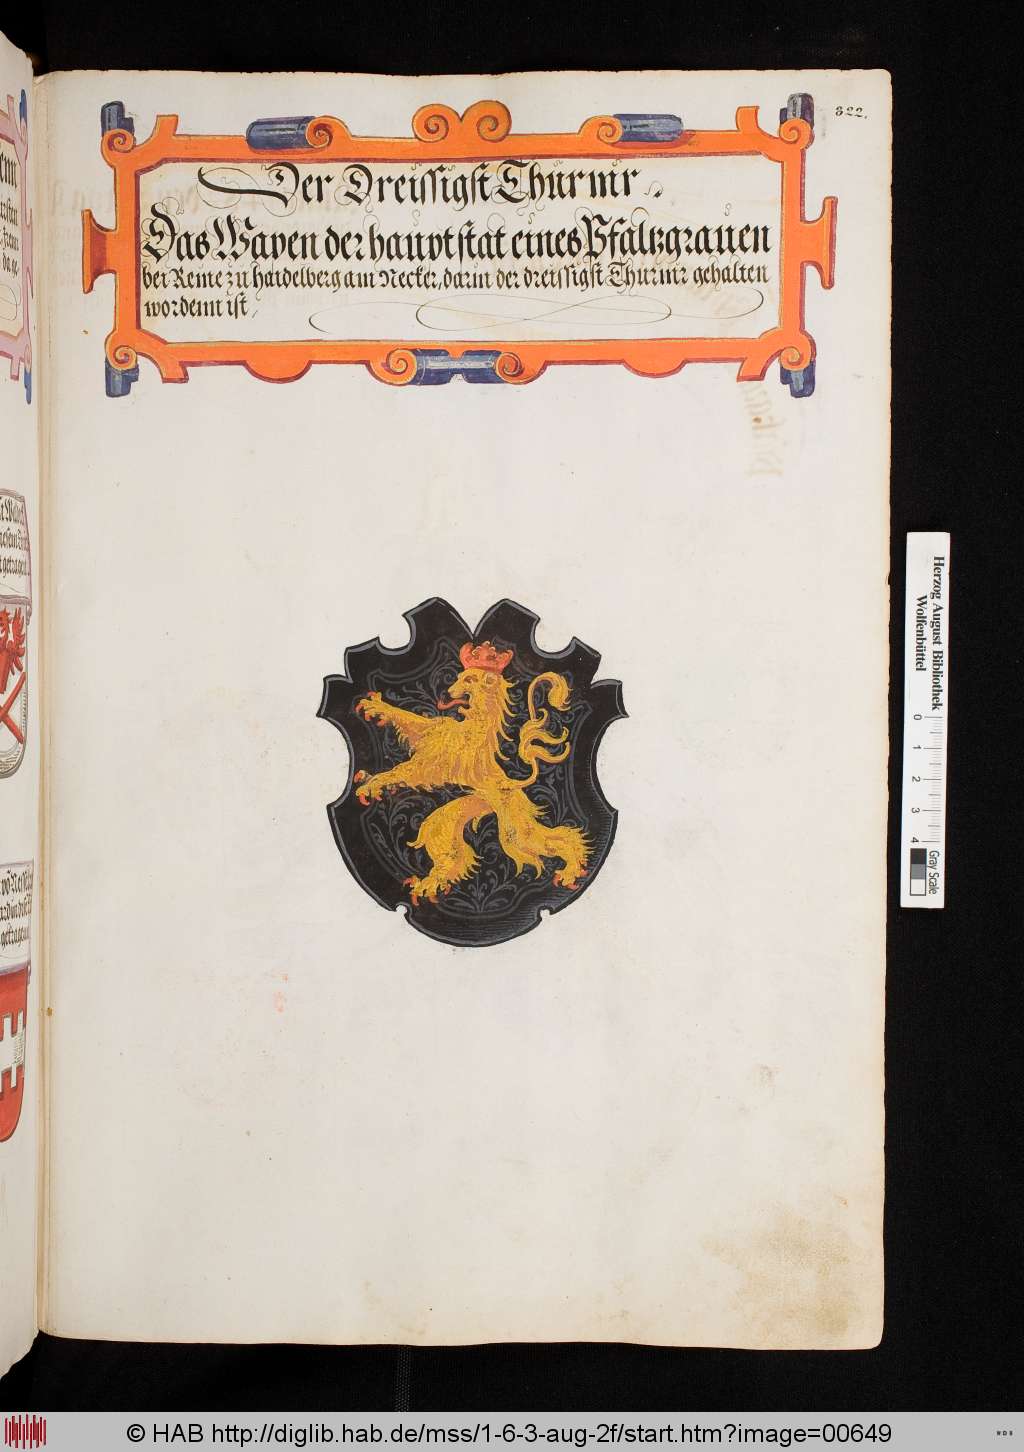 322.
Der Dreissigst Thurnir
Das Wapen der haupt stat eines Pfaltzgrauen
bei Reine zu Haidelberg am Necker, darin der dreissigst Thurnir gehalten
wordenn ist,
Herzog August Bibliothek
Wolfenbüttel
0 1 2 3 4
Gray Scale
© HAB http://diglib.hab.de/mss/1-6-3-aug-2f/start.htm?image=00649